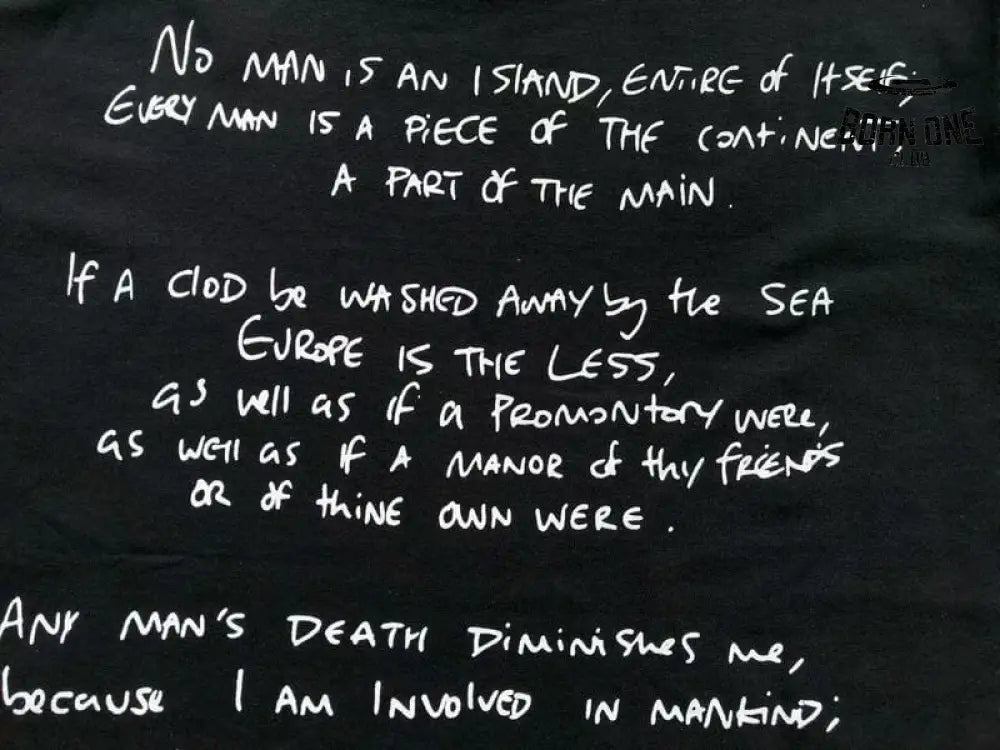 No MAN IS AN ISLAND, ENTIRE of ItSElf;
EVERY MAN IS A PiECE Of THE CoNtiNENt,
A PART Of THE MAIN.
If A ClOD be WASHED AWAY by the SEA
EUROPE IS THE LESS,
as well as if a PROMONtORY WERE,
as well as If A MANOR of thy fRiENDS
OR of thiNE OWN WERE.
ANY MAN'S DEATH DiMiNiShes me,
because I AM INVOlVED IN MANKiND;
BORN ONE
CLUB